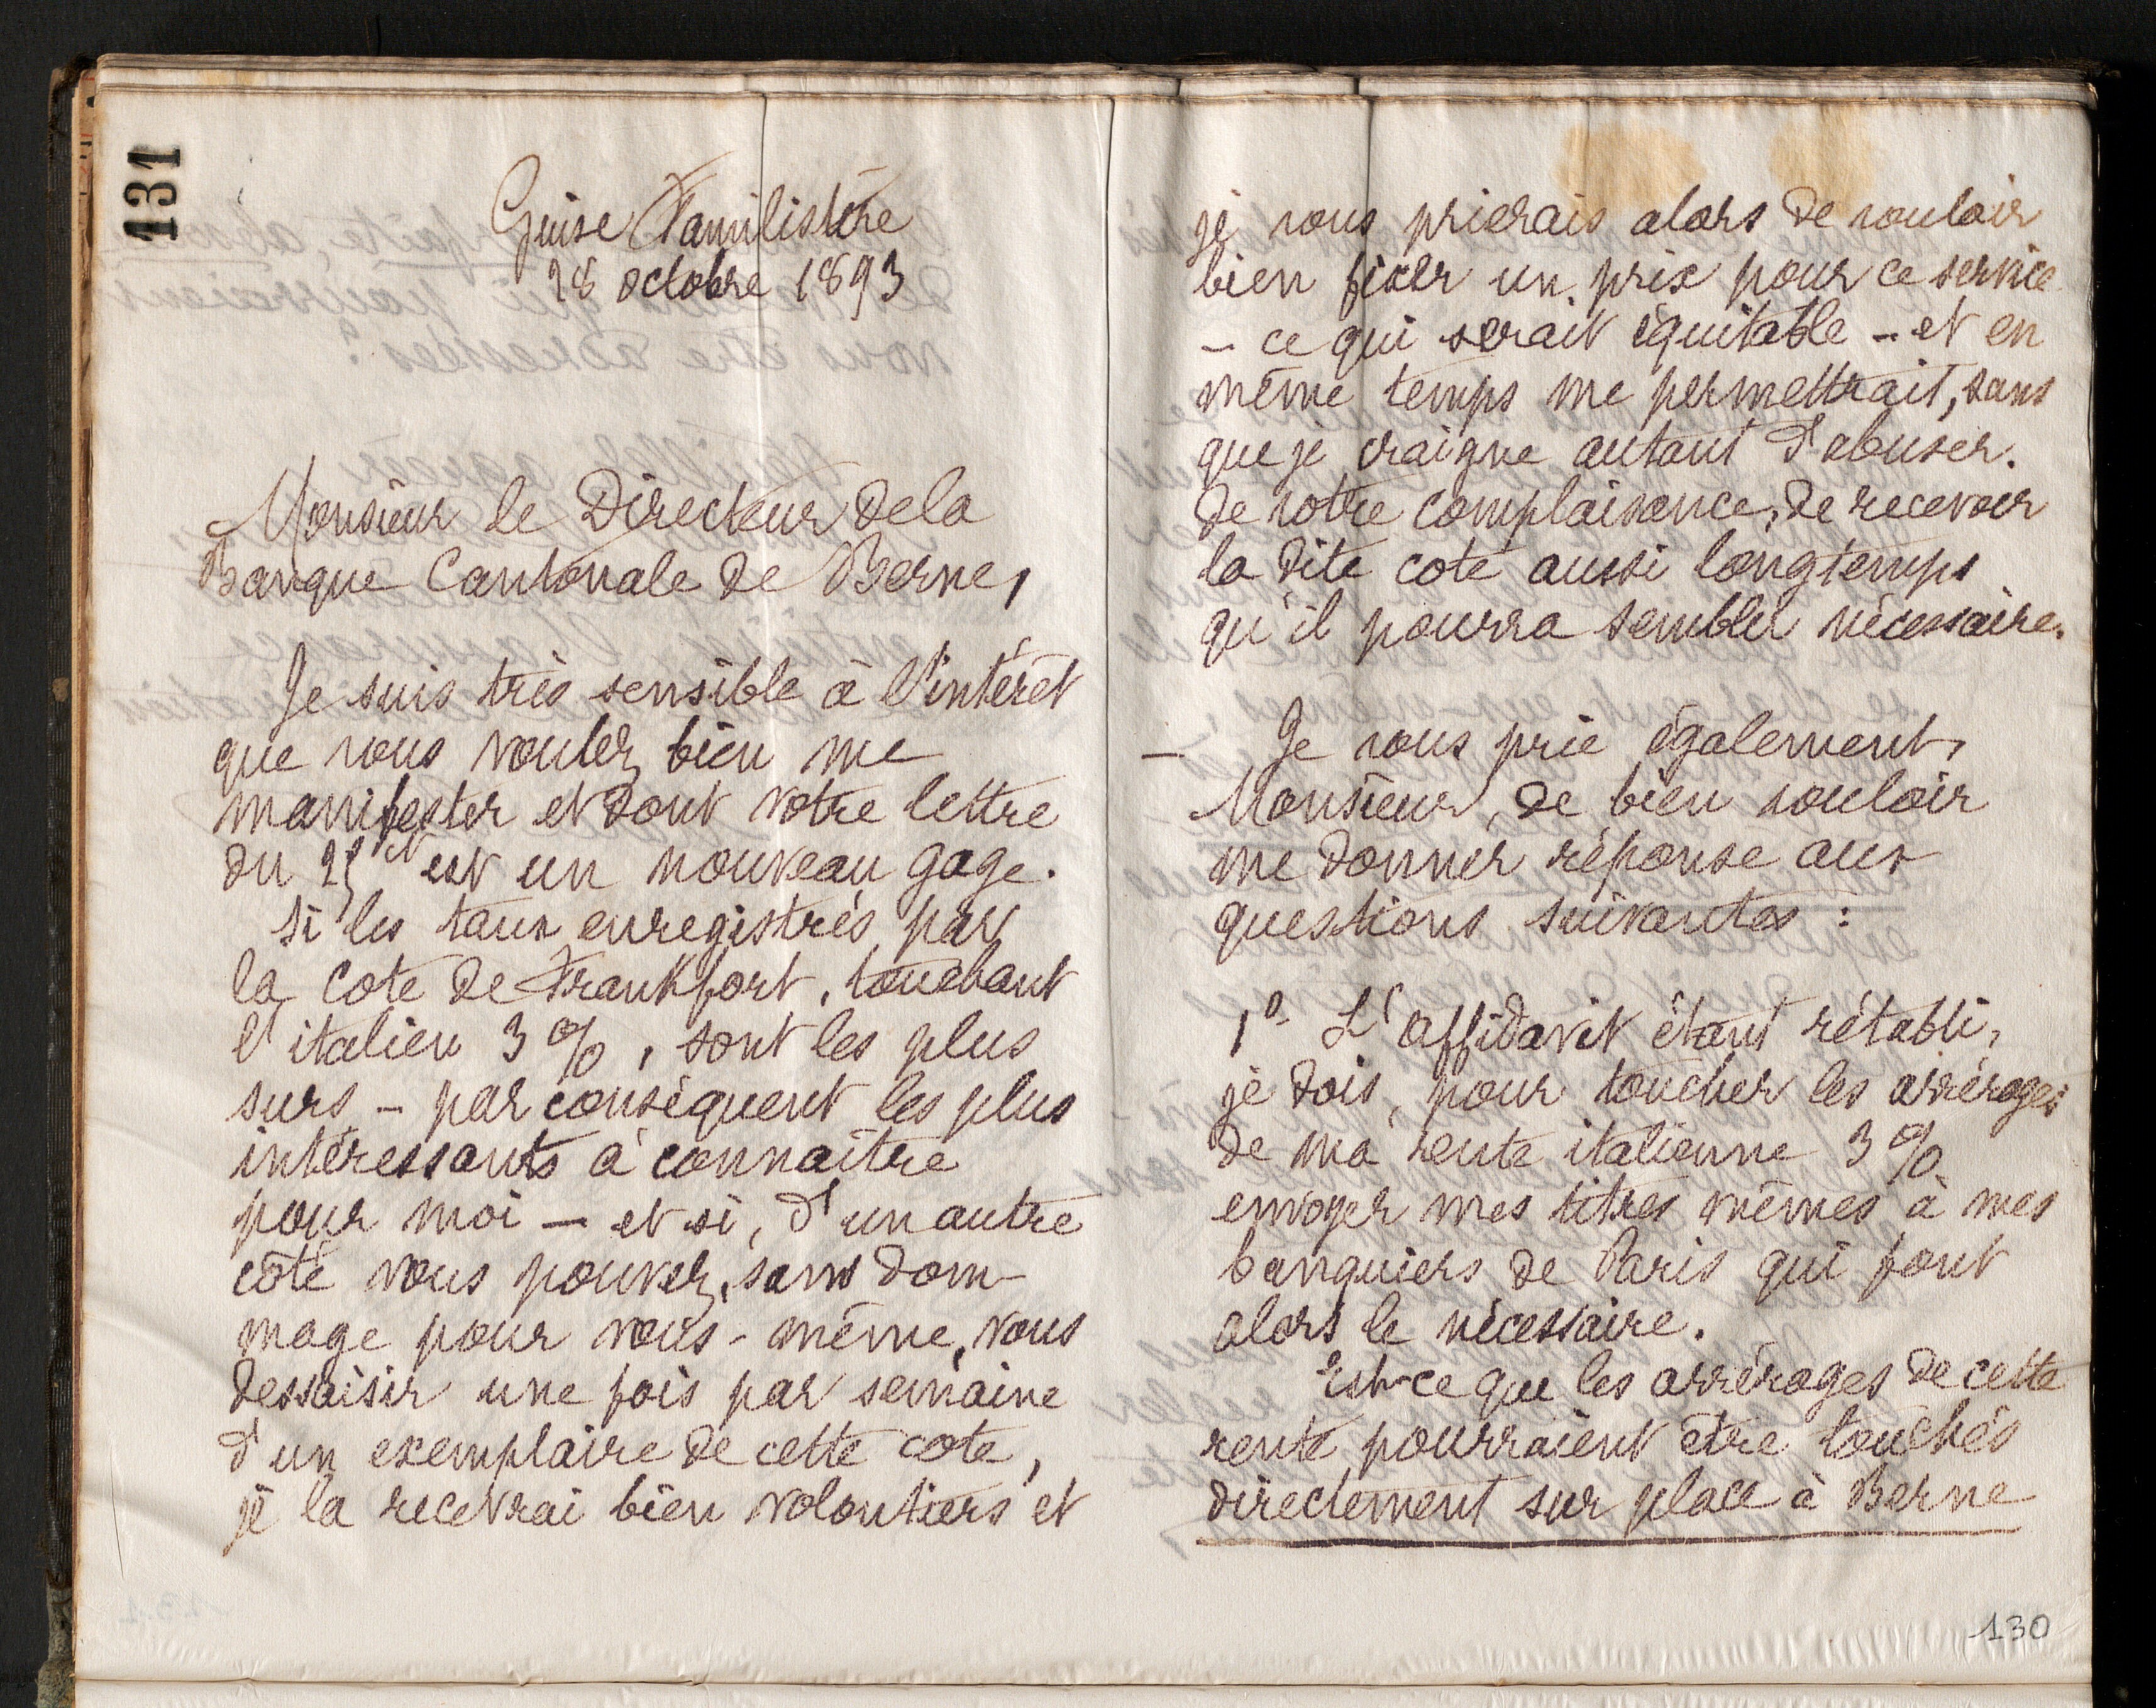 131
Guise Familistère
28 octobre 1893
Monsieur le Directeur de la
Banque Cantonale de Berne,
Je suis très sensible à l'intérêt
que vous voulez bien me
manifester et dont votre lettre
du 25 ct est un nouveau gage.
Si les taux enregistrés par
la cote de Frankfort, touchant
l'italien 3 %, sont les plus
surs – par conséquent les plus
intéressants à connaître
pour moi – et si, d'un autre
côté vous pouvez, sans dom-
mage pour vous-même, vous
dessaisir une fois par semaine
d'un exemplaire de cette cote,
je la recevrai bien volontiers et
je vous prierais alors de vouloir
bien fixer un prix pour ce service
– ce qui serait équitable – et en
même temps me permettrait, sans
que je craigne autant d'abuser.
de votre complaisance, de recevoir
la dite cote aussi longtemps
qu'il pourra sembler nécessaire.
– Je vous prie également,
Monsieur, de bien vouloir
me donner réponse aux
questions suivantes :
1º L'affidavit étant rétabli,
je dois, pour toucher les arrérages
de ma rente italienne 3 %
envoyer mes titres mêmes à mes
banquiers de Paris qui font
alors le nécessaire.
Est-ce que les arrérages de cette
rente pourraient être touchés
directement sur place à Berne
130